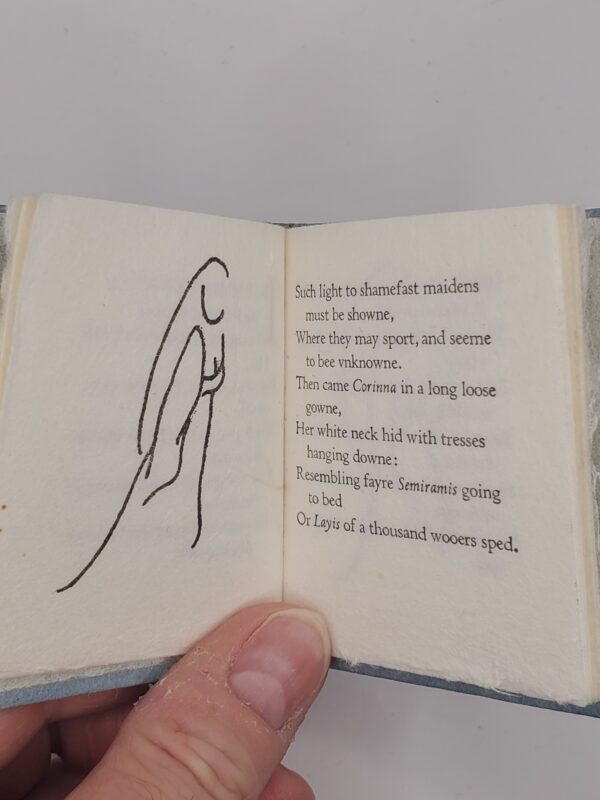 Such light to shamefast maidens
must be showne,
Where they may sport, and seeme
to bee vnknowne.
Then came Corinna in a long loose
gowne,
Her white neck hid with tresses
hanging downe:
Resembling fayre Semiramis going
to bed
Or Layis of a thousand wooers sped.